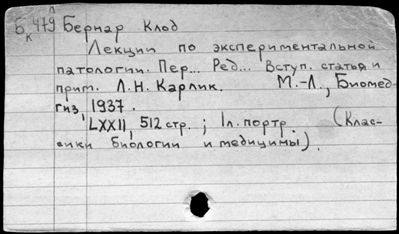 Л
Б 479 Бернар Клод
К
Лекции по экспериментальной
патологии. Пер... Ред... Вступ. статья и
прим. Л.Н. Карлик. М.-Л., Биомед-
гиз, 1937.
LXXII, 512 стр.; 1 л. портр. (Клас-
сики биологии и медицины).